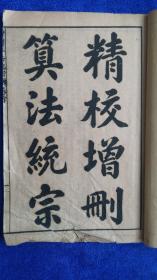 精校增刪
算法統宗